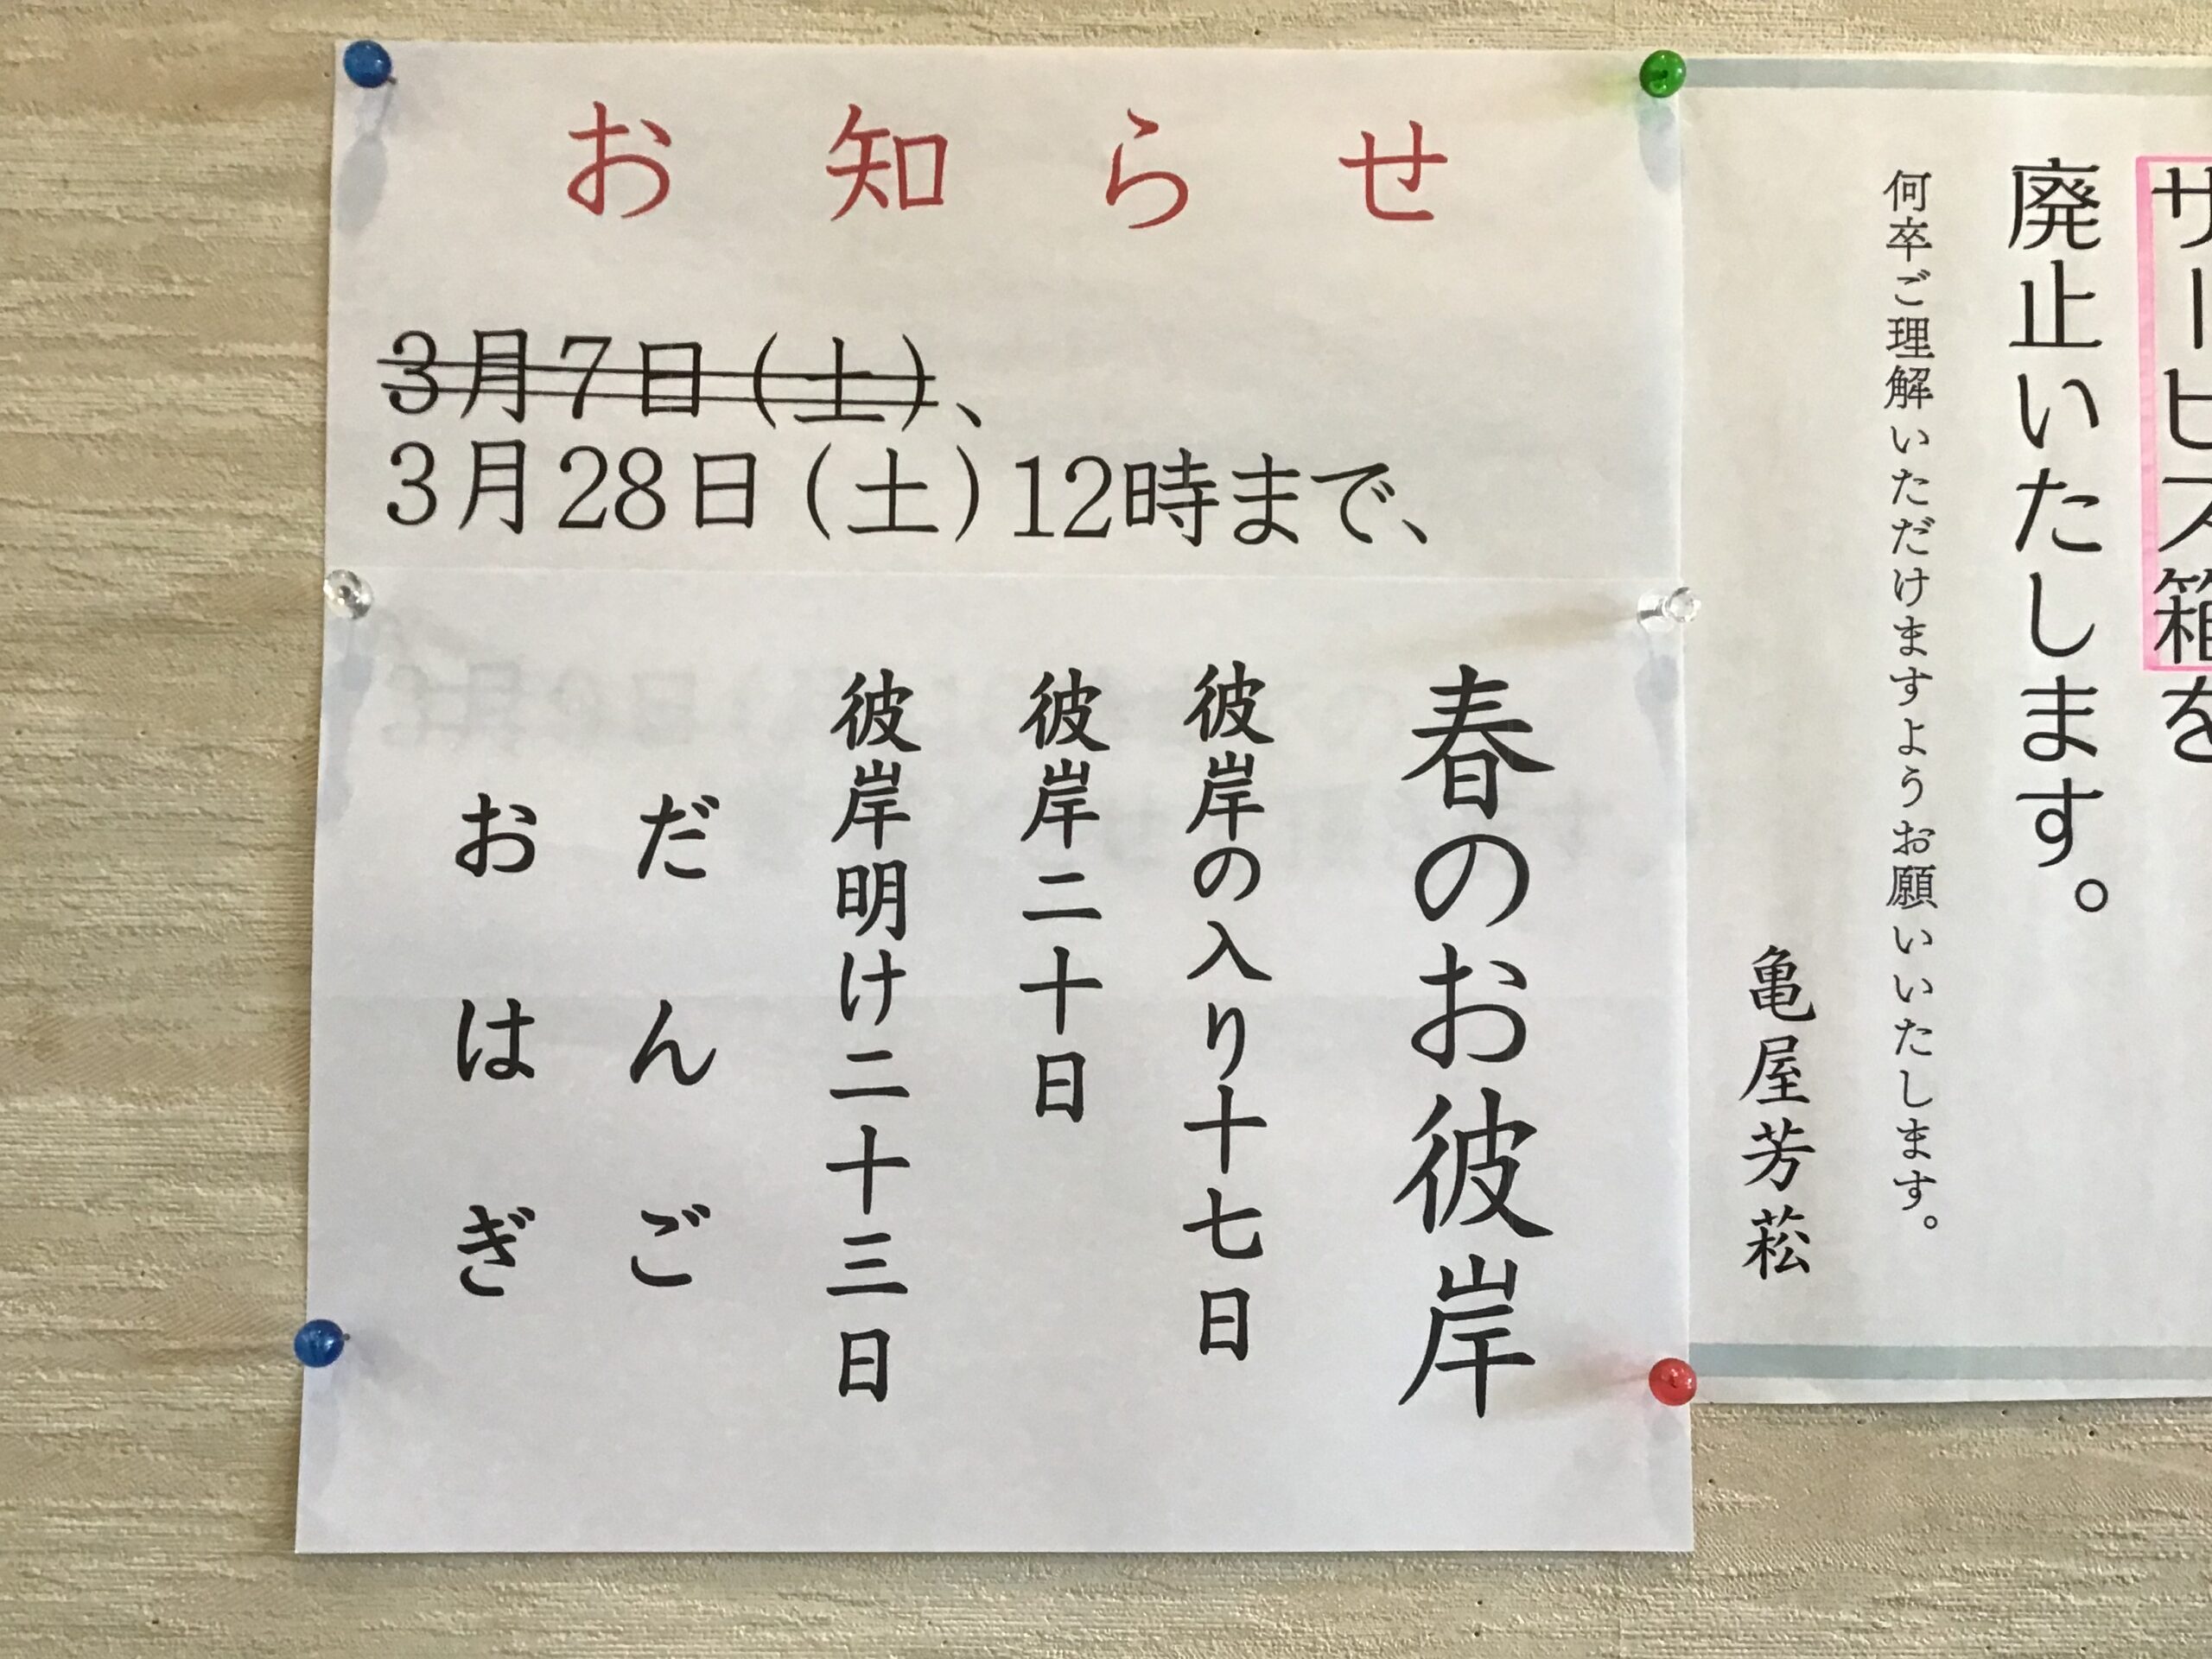 お知らせ
3月7日(土)、
3月28日(土)12時まで、
春のお彼岸
彼岸の入り十七日
彼岸二十日
彼岸明け二十三日
だんご
おはぎ
サービス箱を
廃止いたします。
何卒ご理解いただけますようお願いいたします。
亀屋芳菘